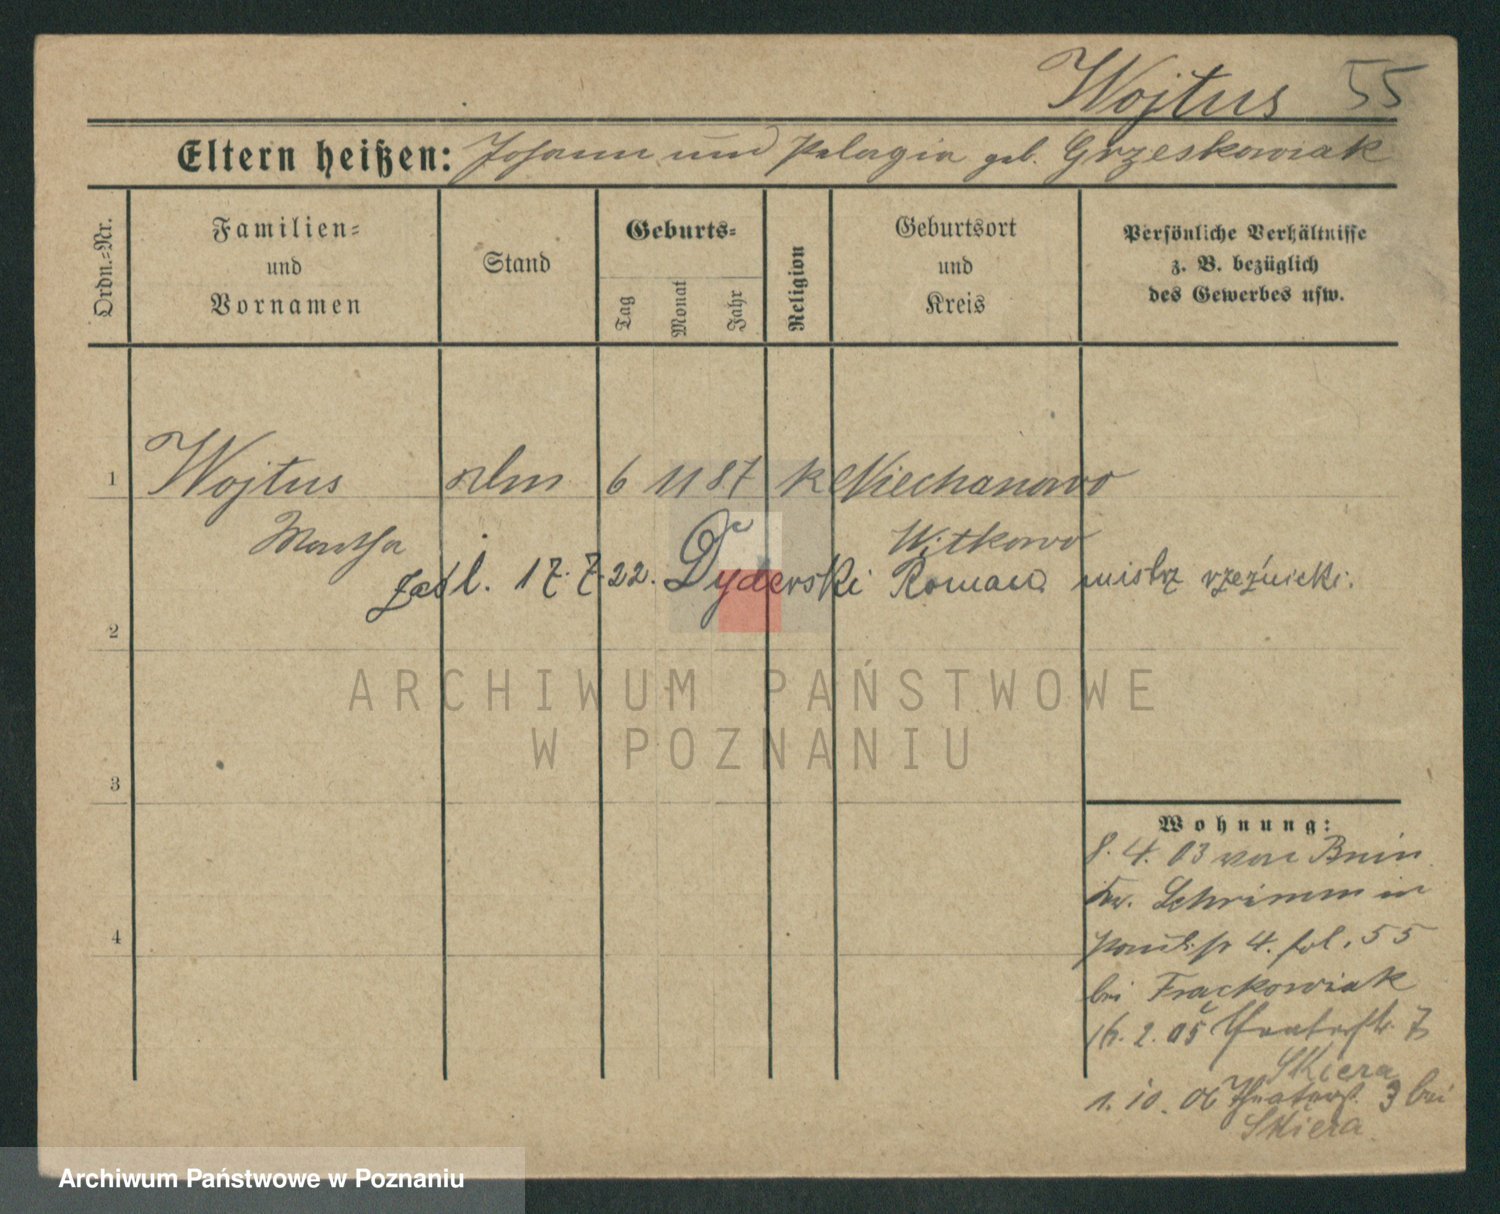 Wojtus 55
Eltern heißen: Johann und Pelagia geb. Grzeskowiak
Ordn.-Nr.
Familien-
und
Vornamen
Stand
Geburts-
Tag
Monat
Jahr
Religion
Geburtsort
und
Kreis
Persönliche Verhältnisse
z. B. bezüglich
des Gewerbes usw.
1 Wojtus 6 11 87 k Niechanowo
Martha Witkowo
17.7.22. Dyderski Roman mistrz rzeźnicki.
2
3
4
Wohnung:
8. 4. 03 von Bnin
Kr. Schrimm in
4. fol. 55
bei Frackowiak
16. 2. 05 Theaterstr. 7
Skiera
1. 10. 06 Theaterst. 3 bei
Skiera
ARCHIWUM PAŃSTWOWE
W POZNANIU
Archiwum Państwowe w Poznaniu